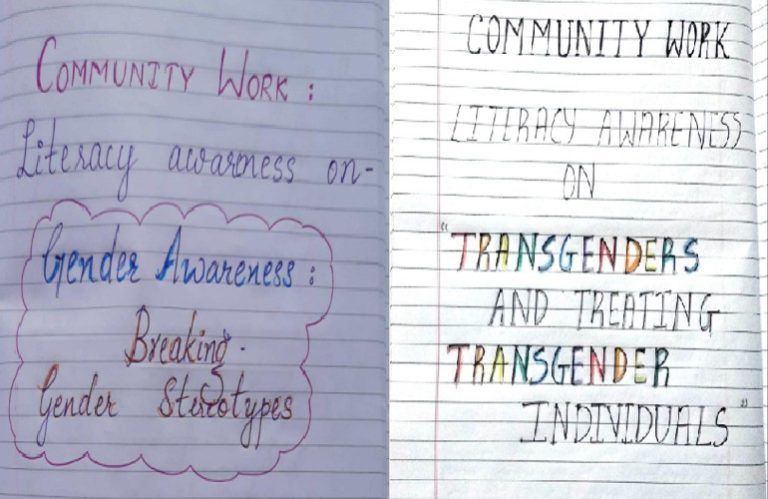 COMMUNITY WORK :
Literacy awarness on-
Gender Awareness :
Breaking
Gender Stereotypes
COMMUNITY WORK
LITERACY AWARENESS
ON
"TRANSGENDERS
AND TREATING
TRANSGENDER
INDIVIDUALS"